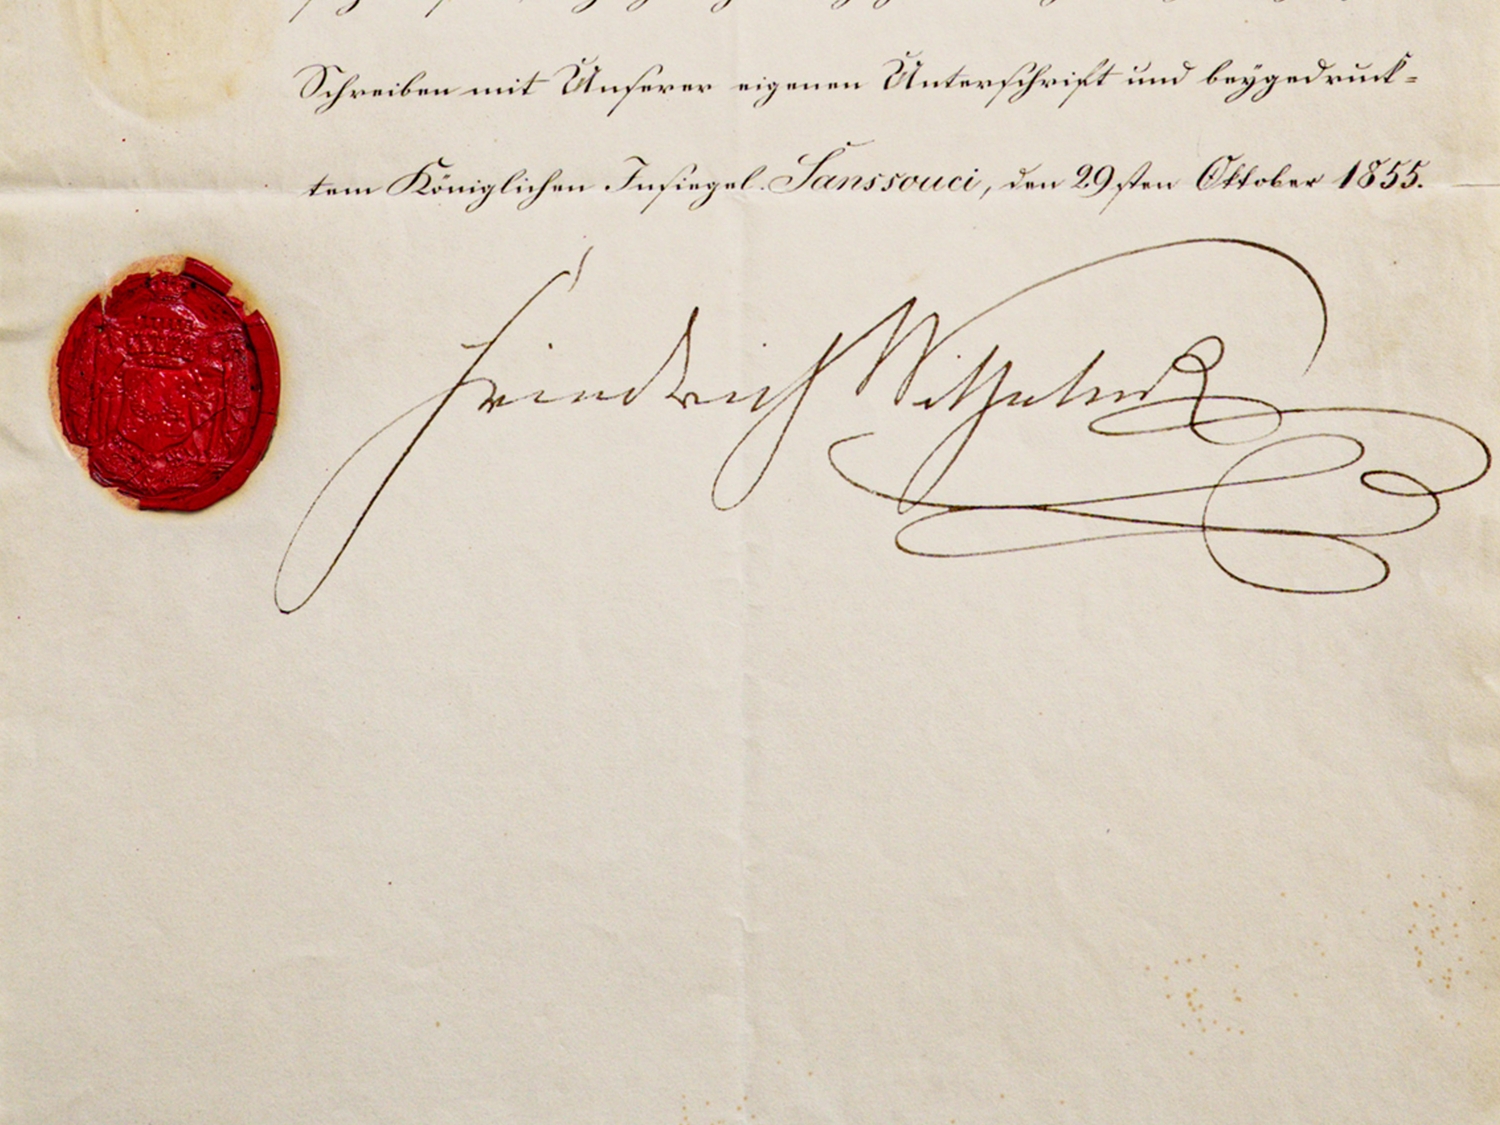 Schreiben mit Unserer eigenen Unterschrift und beygedruck=
tem Königlichen Insiegel. Sanssouci, den 29sten Oktober 1855.
Friedrich Wilhelm